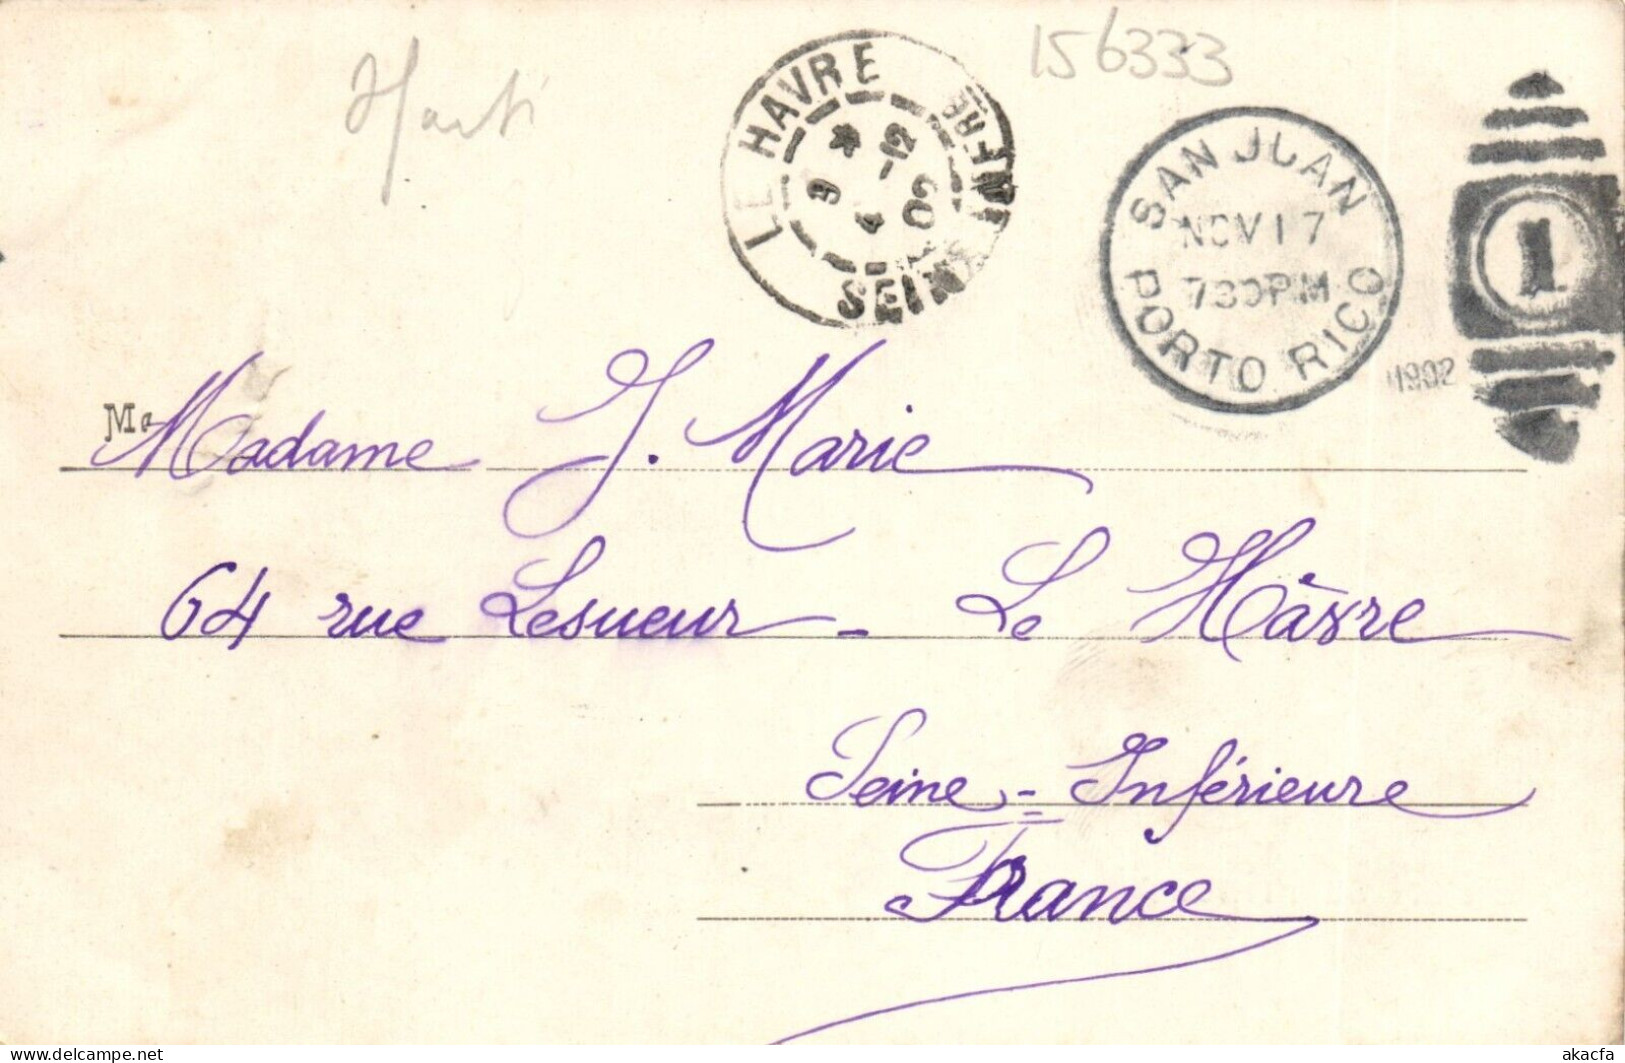 156333
LE HAVRE
SEINE
SAN JUAN
NOV 17
730PM
PORTO RICO
1902
1
Me
Madame J. Marie
64 rue Lesueur - Le Hâvre
Seine = Inférieure
France
delcampe.net
akacfa